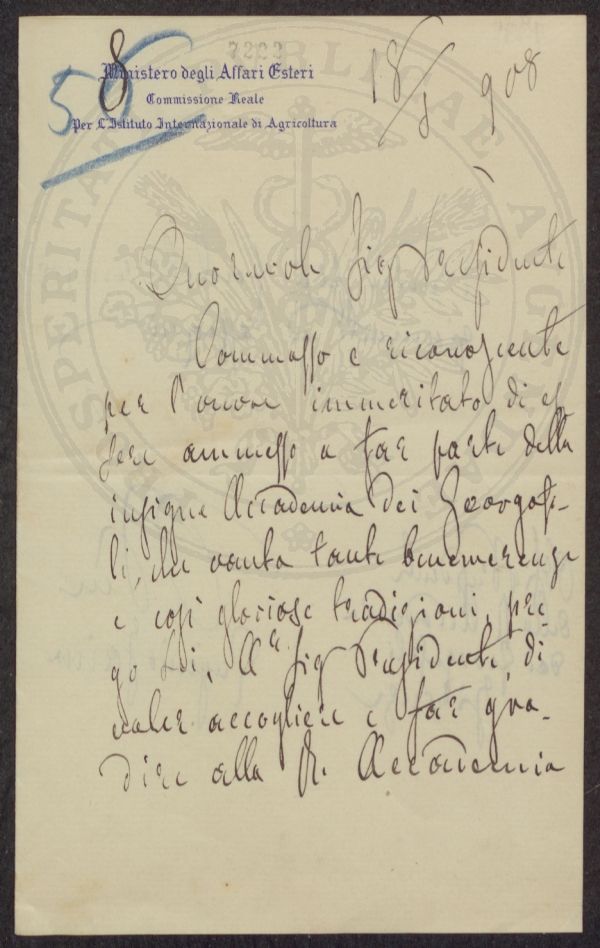 7223
8
50
Ministero degli Affari Esteri
Commissione Reale
Per L'Istituto Internazionale di Agricoltura
18/1 908
Onorevole Sig Presidente
Commosso e riconoscente
per l'onore immeritato di es
sere ammesso a far parte della
insigne Accademia dei Georgofi-
li, che vanta tante benemerenze
e così gloriose tradizioni, pre
go Lei, Ill.re Sig Presidente, di
voler accogliere e far gra-
dire alla R. Accademia